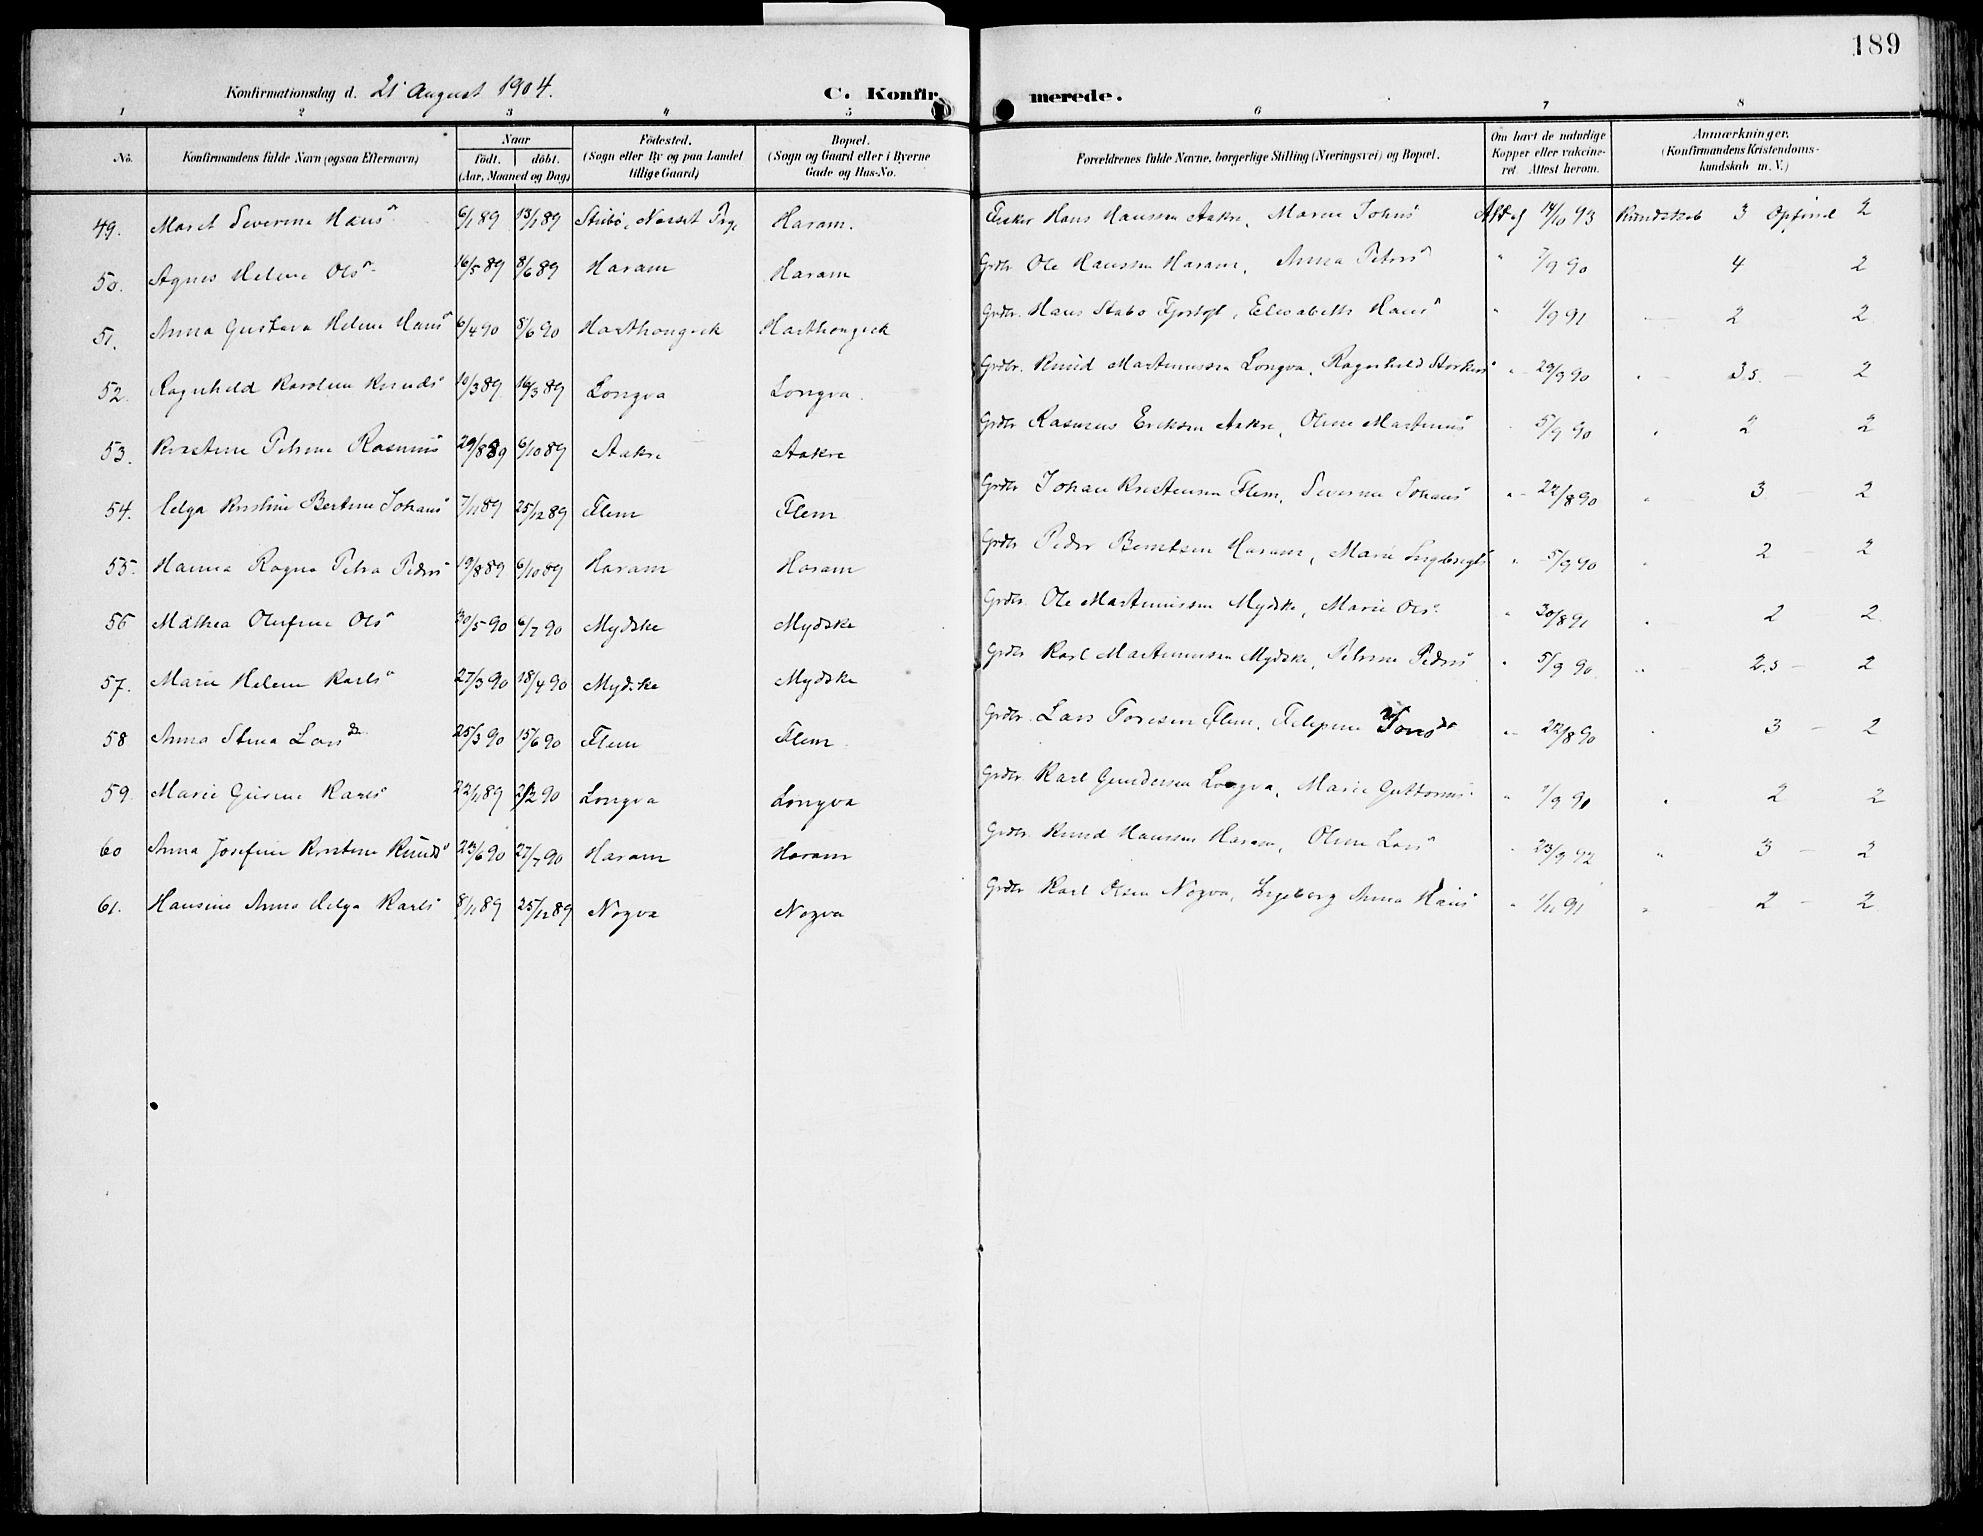 189
Konfirmationsdag d. 21 August 1904. C. Konfir merede.
1 2 3 4 5 6 7 8
No. Konfirmandens fulde Navn (ogsaa Efternavn) Naar födt. döbt. (Aar, Maaned og Dag) Födested. (Sogn eller By og paa Landet tillige Gaard) Bopæl. (Sogn og Gaard eller i Byerne Gade og Hus-No. Forældrenes fulde Navne, borgerlige Stilling (Næringsvei) og Bopæl. Om havt de naturlige Kopper eller vakcineret. Attest herom. Anmærkninger. (Konfirmandens Kristendomskundskab m. V.)
49. Maret Severine Hans 6/1 89 13/1 89 Haram. Fisker Hans Hanssen Aakre, Maren Johns 14/10 93 Kundskab 3 Opförsel 2
50. Agnes Heline Ols 16/5 89 8/6 89 Haram Haram Grdbr. Ole Hanssen Haram, Anna Peters " 7/9 90 4 2
51. Anna Gustava Heline Hans 6/4 90 8/6 90 Grdbr. Hans Stabo Fjortoft, Elisabeth Hans " 1/9 91 2 2
52. Ragnhild Karoline Knuds 10/3 89 16/3 89 Longva Longva. Grdbr. Knud Martinussen Longva, Ragnhild " 29/9 90 " 3 2
53. Kristine Petrine Rasmus 29/8 89 6/10 89 Aakre Aakre Grdbr Rasmus Eriksen Aakre, Oline Martinus 5/9 90 " 2 2
54. Helga Kristine Bertine Johans 7/11 89 25/12 89 Flem Flem Grdbr Johan Kristensen Flem, Severine Johans " 22/8 90 " 3 2
55. Hanna Ragna Petra Peders 19/8 89 6/10 89 Haram Haram Grdbr Peder Berntsen Haram, Marie Ingebrigts " 5/9 90 " 2 2
56 Mathea Olufine Ols 30/5 90 6/7 90 Mydske Mydske Grdbr. Ole Martinussen Mydske, Marie Ols " 30/8 91 " 2 2
57. Marie Heline Karls 27/3 90 18/4 90 Mydske Mydske Grdbr Karl Martinussen Mydske, Petrine Peders " 5/9 90 " 2.3 2
58 Anna Stina Lars 25/3 90 15/6 90 Flem Flem Grdbr. Lars Toresen Flem, " 22/8 90 " 3 2
59. Marie Karls 22/11 89 2/2 90 Longva Longva Grdbr. Karl Gundersen Longva, Marie Guttorms " 1/9 91 " 2 2
60 Anna Josefine Kristine Knuds 23/6 90 27/7 90 Haram Haram Grdbr. Knud Hanssen Haram, Oline Lars " 23/9 92 " 3 2
61. Hansine Anna Helga Karls 8/11 89 25/12 89 Nogva Nogva Grdbr Karl Olsen Nogva, Ingeborg Anna Hans " 1/11 91 " 2 2